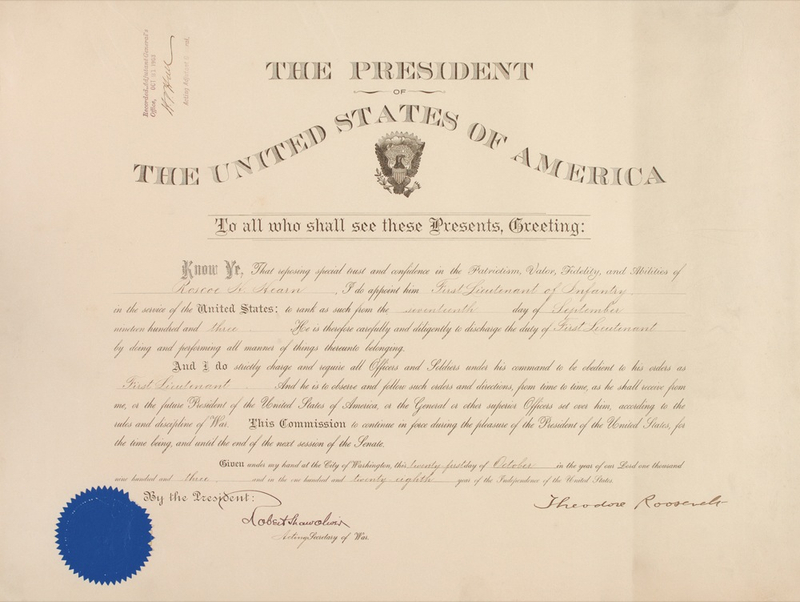 Recorded, Adjutant General's
Office, OCT 23 1903
Acting Adjutant General.
THE PRESIDENT
OF
THE UNITED STATES OF AMERICA
To all who shall see these Presents, Greeting:
Know Ye, That reposing special trust and confidence in the Patriotism, Valor, Fidelity, and Abilities of
Roscoe H. Hearn, I do appoint him First Lieutenant of Infantry
in the service of the United States: to rank as such from the seventeenth day of September
nineteen hundred and three. He is therefore carefully and diligently to discharge the duty of First Lieutenant
by doing and performing all manner of things thereunto belonging.
And I do strictly charge and require all Officers and Soldiers under his command to be obedient to his orders as
First Lieutenant. And he is to observe and follow such orders and directions, from time to time, as he shall receive from
me, or the future President of the United States of America, or the General or other superior Officers set over him, according to the
rules and discipline of War. This Commission to continue in force during the pleasure of the President of the United States, for
the time being, and until the end of the next session of the Senate.
Given under my hand at the City of Washington, this twenty first day of October in the year of our Lord one thousand
nine hundred and three, and in the one hundred and twenty eighth year of the Independence of the United States.
By the President:
Theodore Roosevelt
Robert Shaw Oliver
Acting Secretary of War.